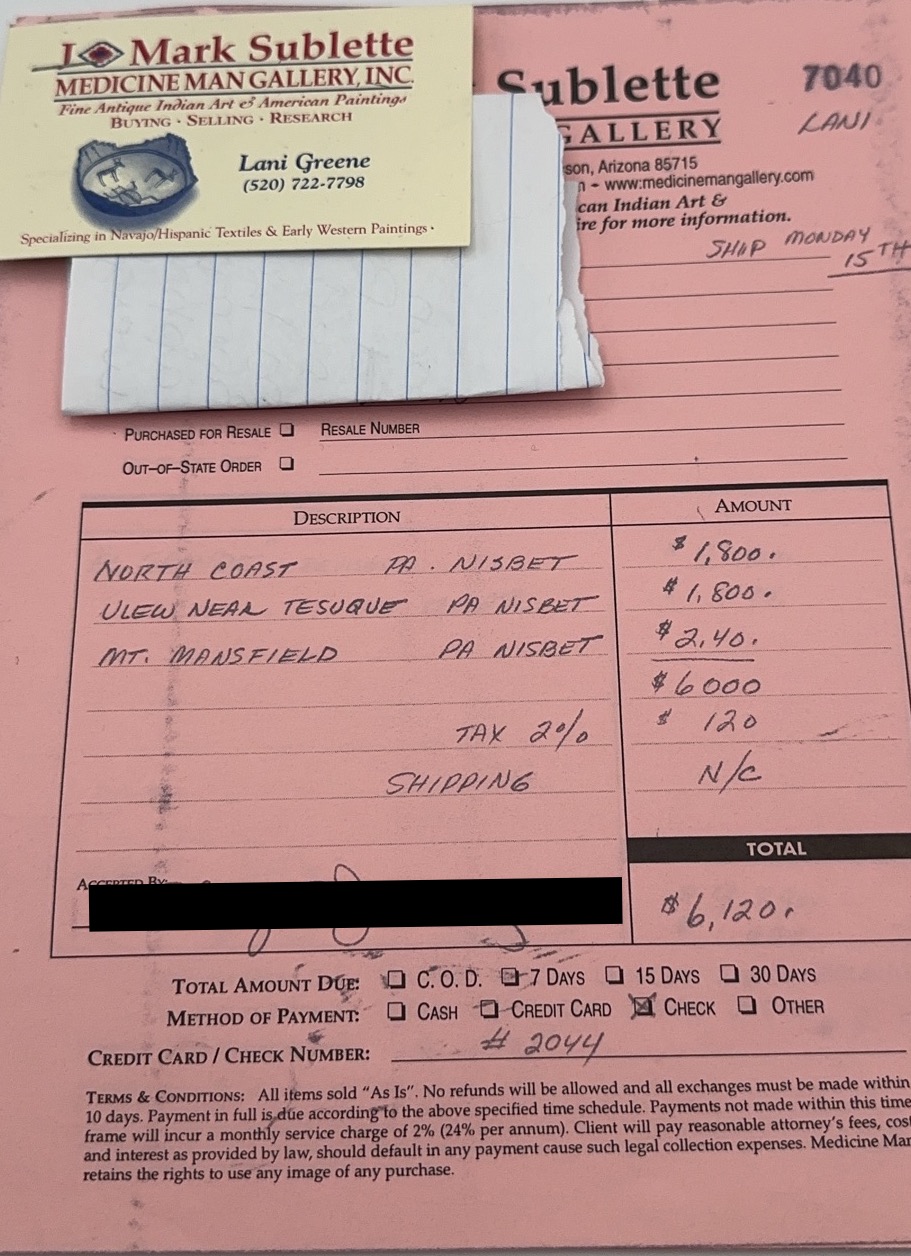 J Mark Sublette
MEDICINE MAN GALLERY, INC.
Fine Antique Indian Art & American Paintings
BUYING · SELLING · RESEARCH
Lani Greene
(520) 722-7798
Specializing in Navajo/Hispanic Textiles & Early Western Paintings ·
Sublette
GALLERY
7040
LANI
son, Arizona 85715
www.medicinemangallery.com
can Indian Art &
ire for more information.
SHIP MONDAY
15TH
PURCHASED FOR RESALE RESALE NUMBER
OUT-OF-STATE ORDER
DESCRIPTION AMOUNT
NORTH COAST PA. NISBET $1,800.
VIEW NEAR TESUQUE PA NISBET $1,800.
MT. MANSFIELD PA NISBET $2,40.
$6000
TAX 2% $120
SHIPPING N/C
TOTAL
ACCEPTED BY:
$6,120.
TOTAL AMOUNT DUE: C.O.D. 7 DAYS 15 DAYS 30 DAYS
METHOD OF PAYMENT: CASH CREDIT CARD CHECK OTHER
CREDIT CARD / CHECK NUMBER: # 2044
TERMS & CONDITIONS: All items sold "As Is". No refunds will be allowed and all exchanges must be made within
10 days. Payment in full is due according to the above specified time schedule. Payments not made within this time
frame will incur a monthly service charge of 2% (24% per annum). Client will pay reasonable attorney's fees, cost
and interest as provided by law, should default in any payment cause such legal collection expenses. Medicine Man
retains the rights to use any image of any purchase.